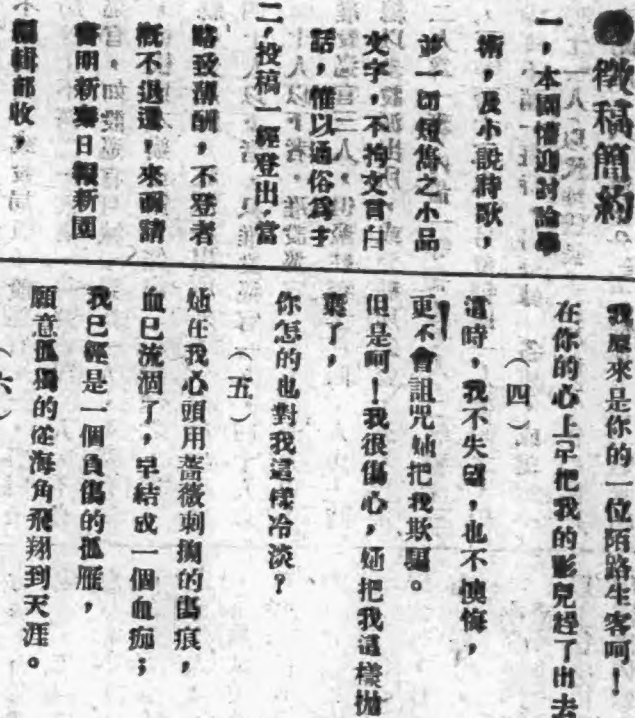 ●徵稿簡約
一，本園懽迎討論學
術，及小說詩歌，
並一切短雋之小品
文字，不拘文言白
話，惟以通俗為主
二，投稿一經登出，當
略致薄酬，不登者
概不退還，來函請
書明新寧日報新園
編輯部收，
我原來是你的一位陌路生客呵！
在你的心上早把我的影兒趕了出去
（四）
這時，我不失望，也不懊悔，
更不會詛咒她把我欺騙。
但是呵！我很傷心，她把我這樣拋
棄了，
你怎的也對我這樣冷淡？
（五）
她在我心頭用薔薇刺搠的傷痕，
血已流涸了，早結成一個血痂；
我已經是一個負傷的孤雁，
願意孤獨的從海角飛翔到天涯。
（六）